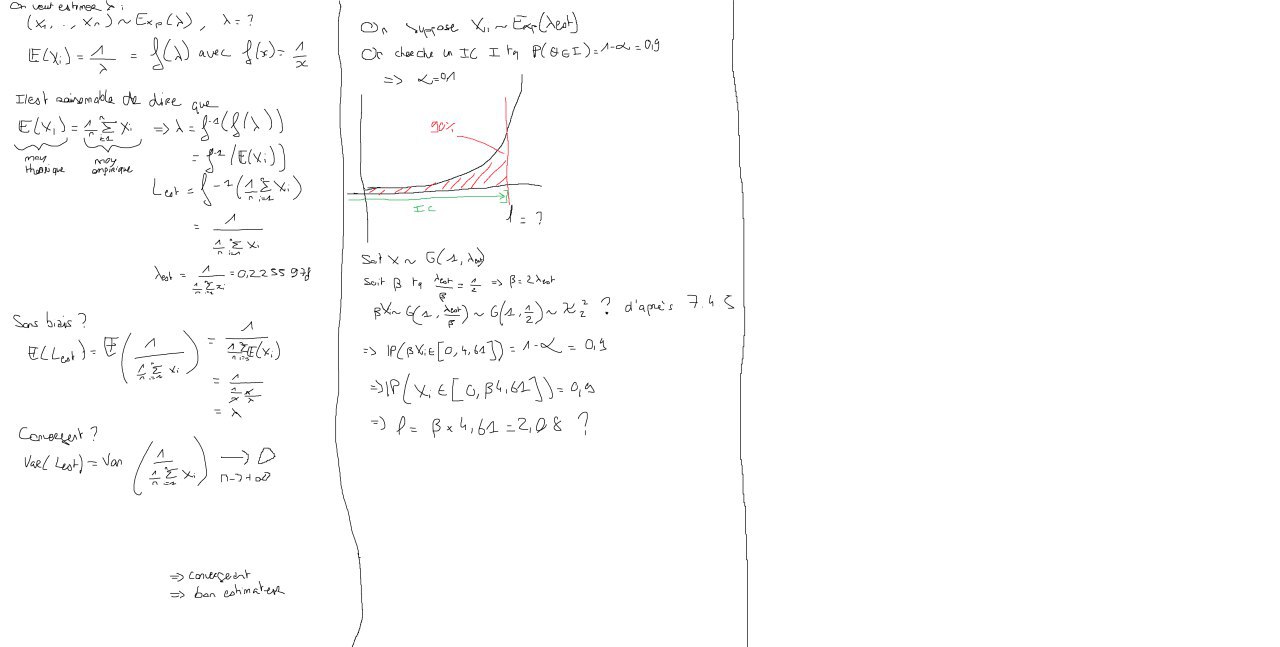 On veut estimer λ :
(X₁, .., Xₙ) ~ Exp(λ), λ = ?
E(Xᵢ) = 1/λ = f(λ) avec f(x) = 1/x
Il est raisonnable de dire que
E(Xᵢ) = 1/n Σᵢ₌₁ⁿ Xᵢ ⇒ λ = f⁻¹(f(λ))
moy théorique
moy empirique
= f⁻¹(E(Xᵢ))
Lest = f⁻¹(1/n Σᵢ₌₁ⁿ Xᵢ)
= 1/(1/n Σᵢ₌₁ⁿ Xᵢ)
λest = 1/(1/n Σᵢ₌₁ⁿ xᵢ) = 0,2255978
Sans biais ?
E(Lest) = E(1/(1/n Σᵢ₌₁ⁿ Xᵢ)) = 1/(1/n Σᵢ₌₁ⁿ E(Xᵢ))
= 1/(1/n n 1/λ)
= λ
Convergent ?
Var(Lest) = Var(1/(1/n Σᵢ₌₁ⁿ Xᵢ)) → 0
n → +∞
⇒ convergent
⇒ bon estimateur
On suppose Xᵢ ~ Exp(λest)
On cherche un IC I tq P(θ ∈ I) = 1-α = 0,9
⇒ α = 0,1
90%
IC
l = ?
Soit X ~ G(1, λest)
Soit β tq λest/β = 1/2 ⇒ β = 2λest
βX ~ G(1, λest/β) ~ G(1, 1/2) ~ χ₂² ? d'après 7.4.5
⇒ P(βXᵢ ∈ [0, 4,61]) = 1-α = 0,9
⇒ P(Xᵢ ∈ [0, β4,61]) = 0,9
⇒ l = β × 4,61 = 2,08 ?